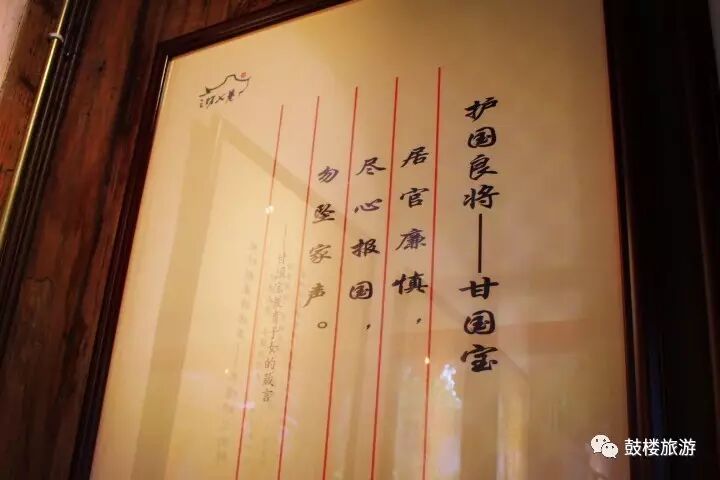 护国良将——甘国宝
居官廉慎，
尽心报国，
勿坠家声。
——甘国宝教育子女的箴言
三坊七巷
鼓楼旅游